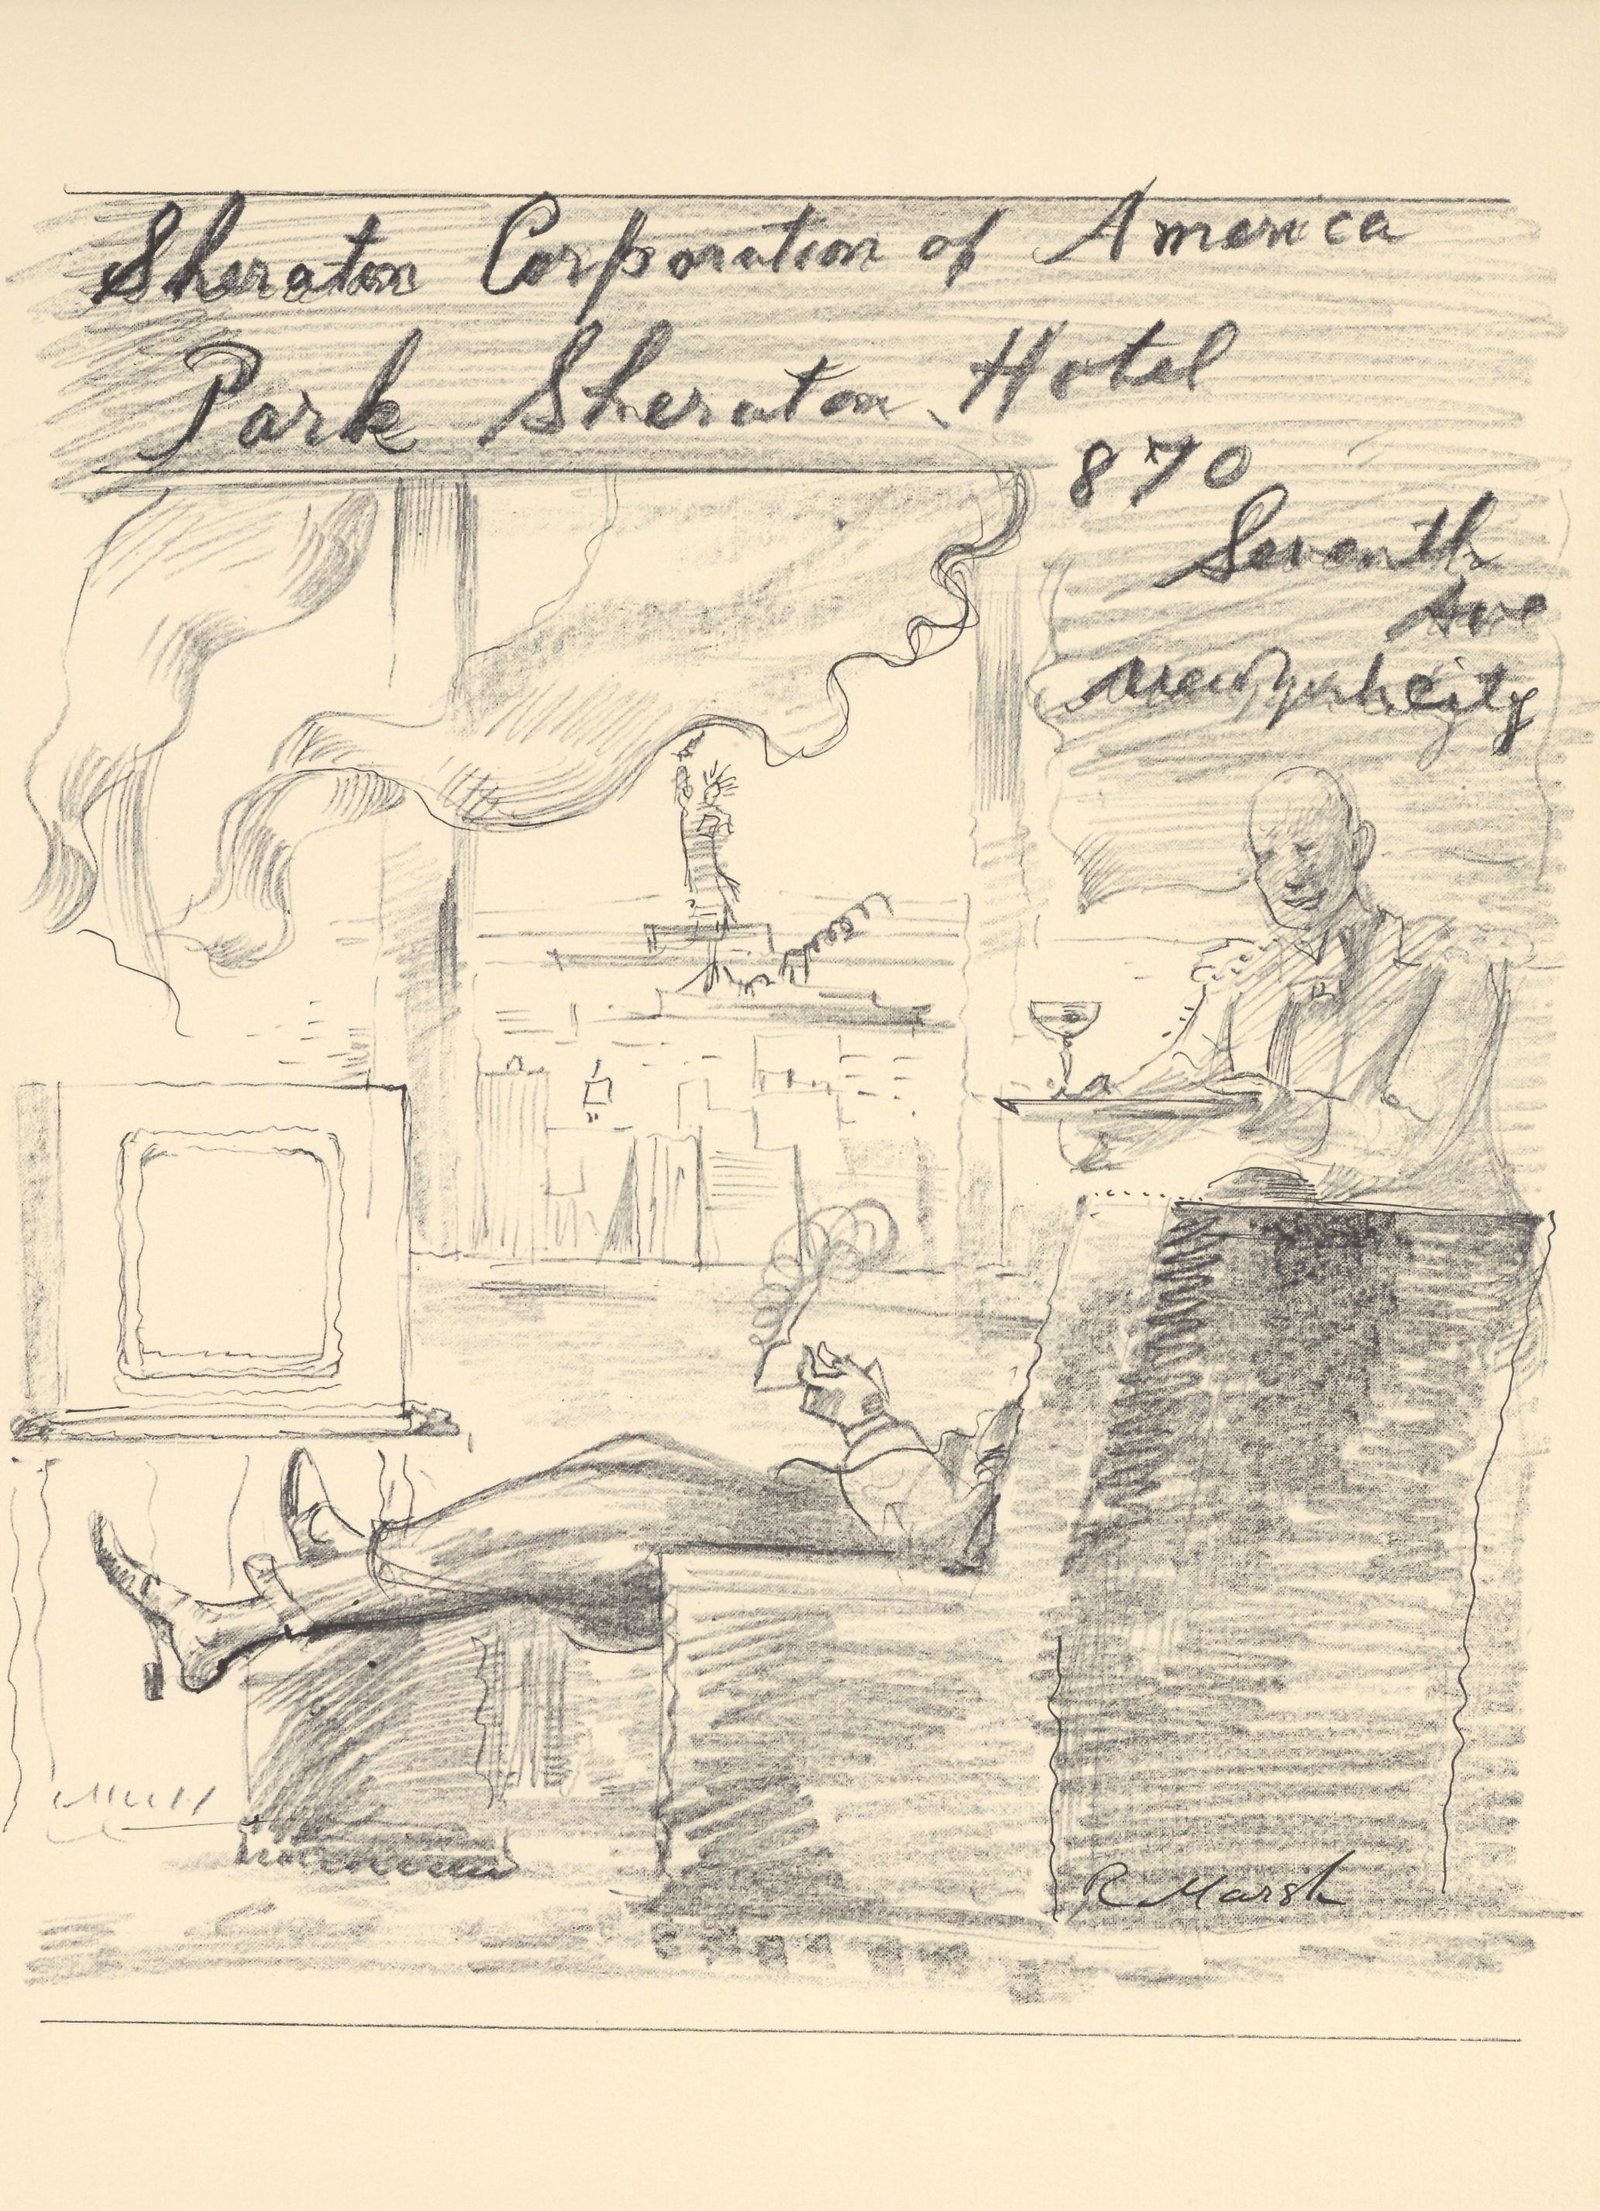 Sheraton Corporation of America
Park Sheraton Hotel
870
Seventh
Ave
New York City
R Marsh